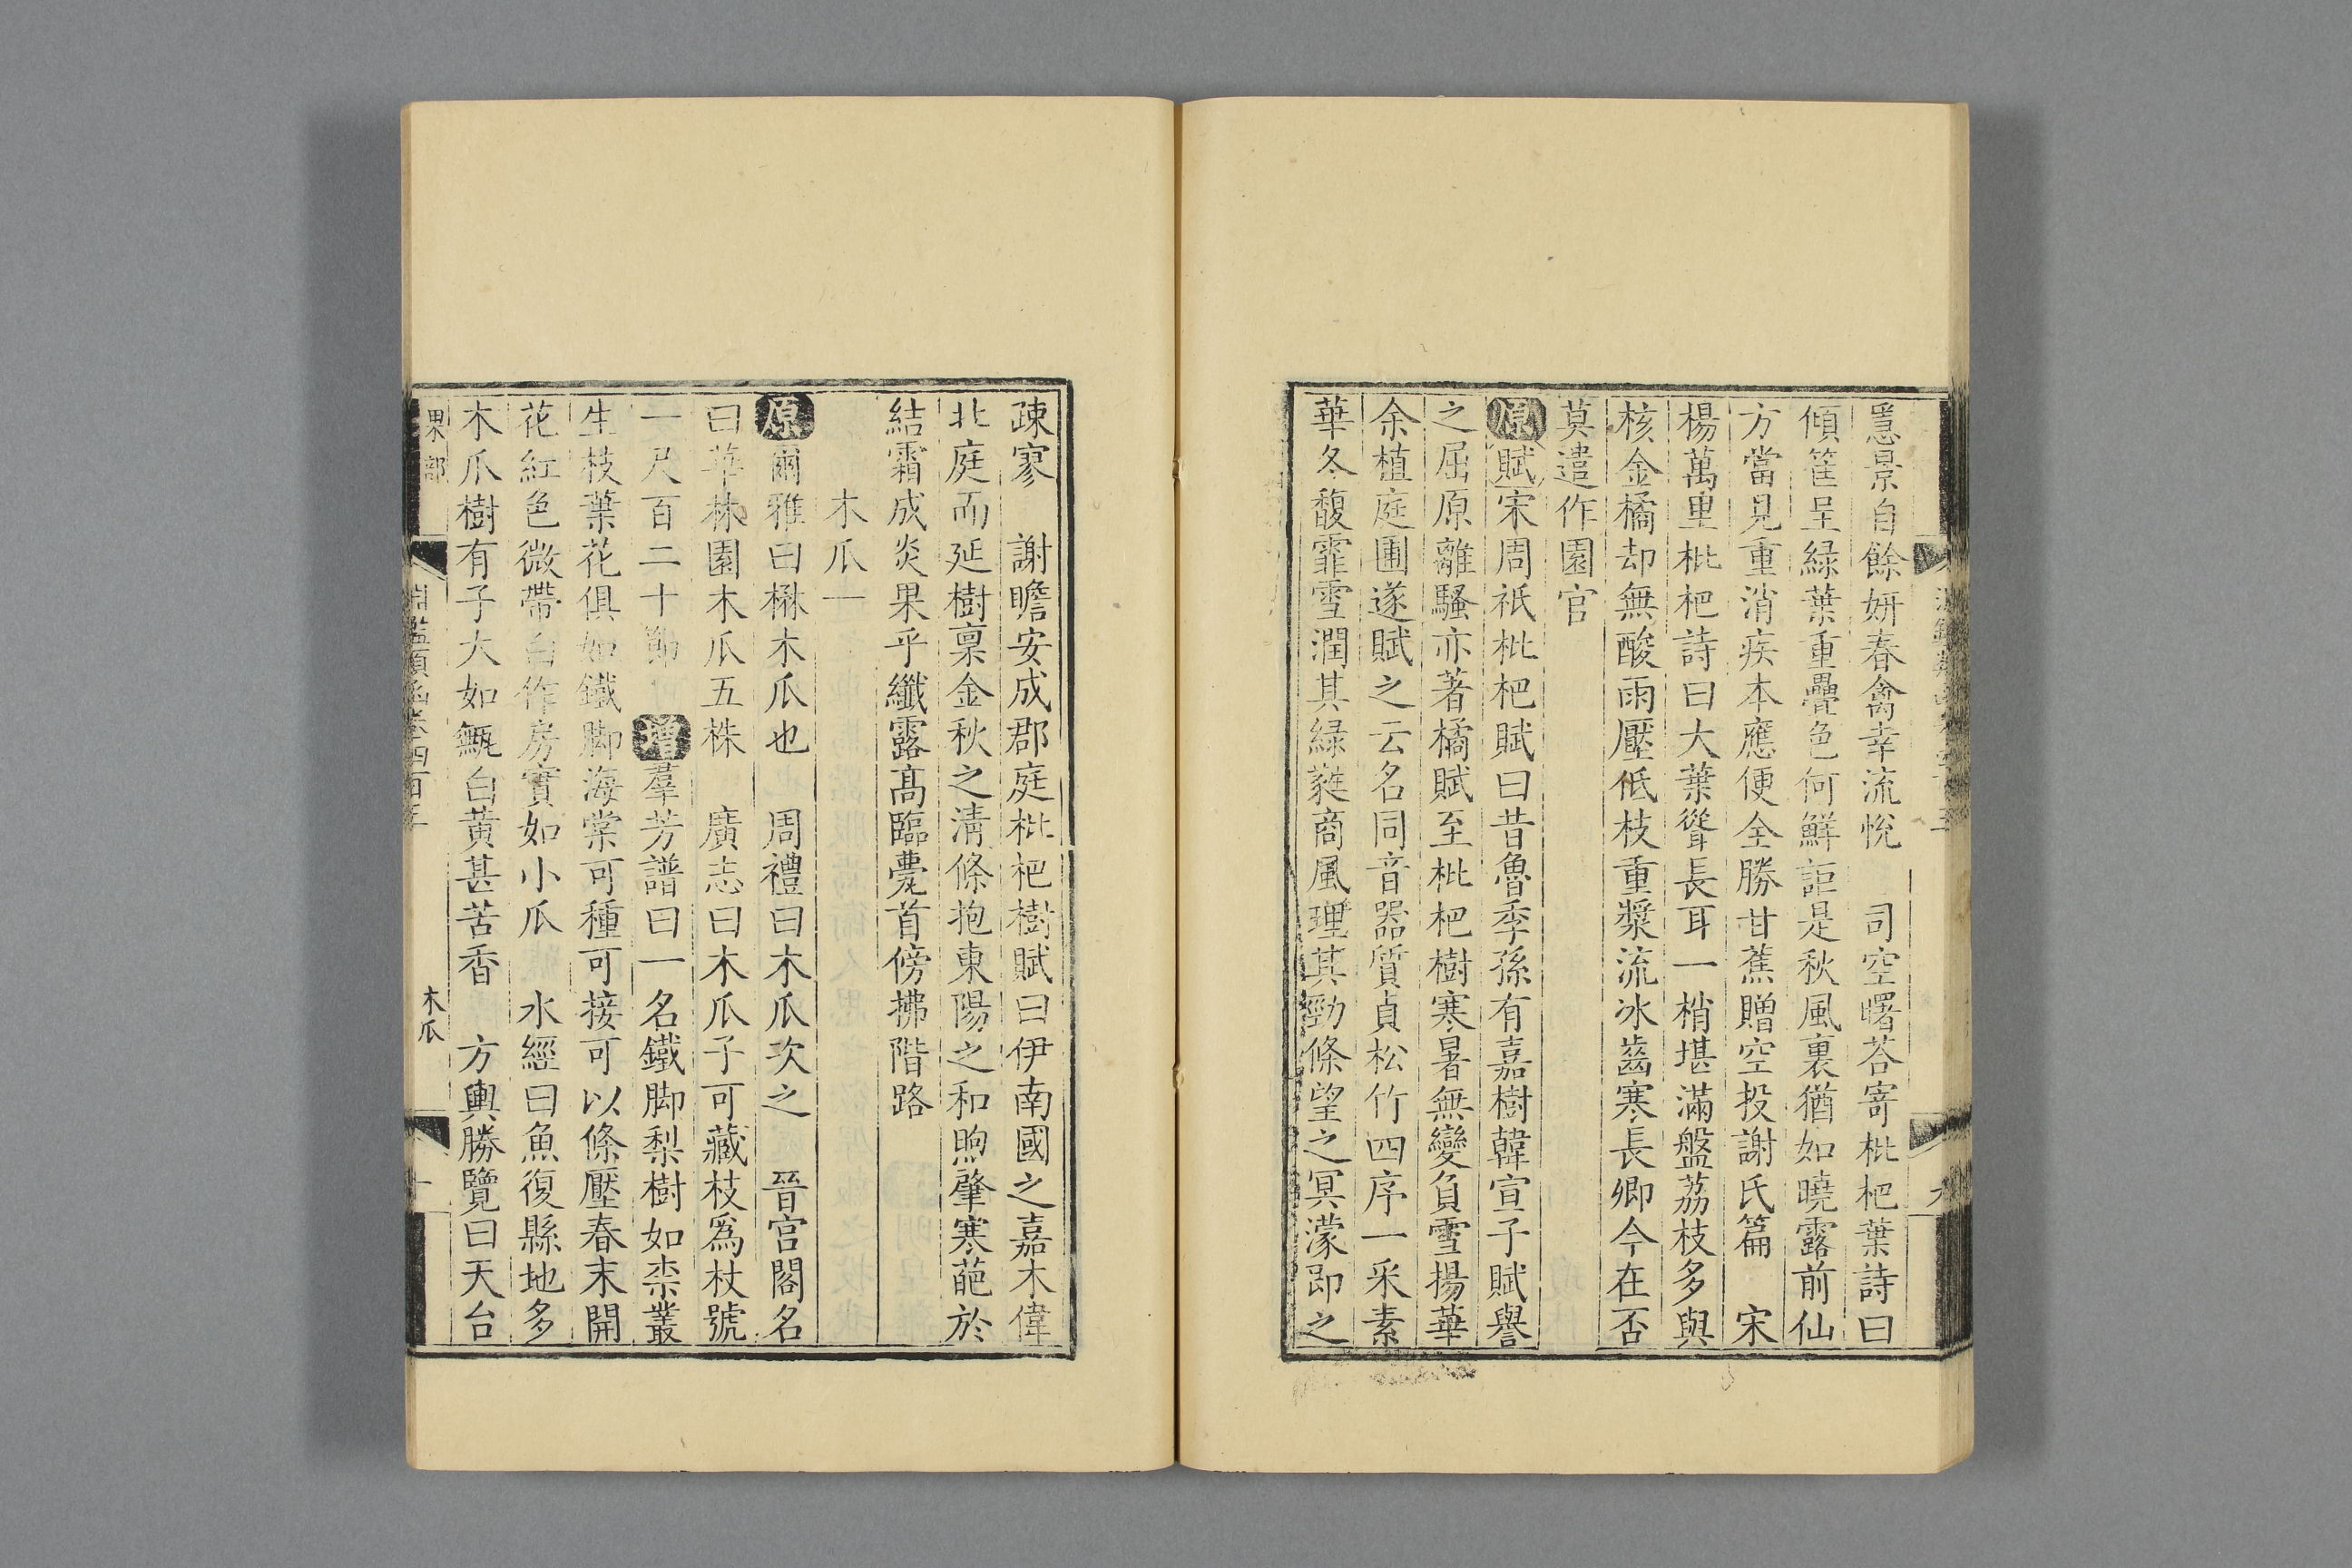 景自餘妍春禽幸流悅　司空曙荅寄枇杷葉詩曰
傾筐呈緑葉重疊色何鮮詎是秋風裏猶如曉露前仙
方當見重消疾本應便全勝甘蕉贈空投謝氏篇　宋
楊萬里枇杷詩曰大葉聳長耳一梢堪滿盤荔枝多與
核金橘却無酸雨壓低枝重漿流冰齒寒長卿今在否
莫遣作園官
原賦宋周祇枇杷賦曰昔魯季孫有嘉樹韓宣子賦譽
之屈原離騷亦著橘賦至枇杷樹寒暑無變負雪揚華
余植庭圃遂賦之云名同音器質貞松竹四序一采素
華冬馥霏雪潤其緑蕤商風理其勁條望之冥濛即之
疎寥　謝瞻安成郡庭枇杷樹賦曰伊南國之嘉木偉
北庭而延樹稟金秋之清條抱東陽之和煦肇寒葩於
結霜成炎果乎纖露髙臨甍首傍拂階路
木瓜一
原爾雅曰楙木瓜也　周禮曰木瓜次之　晉宫閣名
曰華林園木瓜五株　廣志曰木瓜子可藏枝爲杖號
一尺百二十節　增羣芳譜曰一名鐵脚梨樹如柰叢
生枝葉花俱如鐵脚海棠可種可接可以條壓春末開
花紅色微帶白作房實如小瓜　水經曰魚復縣地多
木瓜樹有子大如甒白黃甚苦香　方輿勝覽曰天台
果部
淵鑑類函卷四百
木瓜